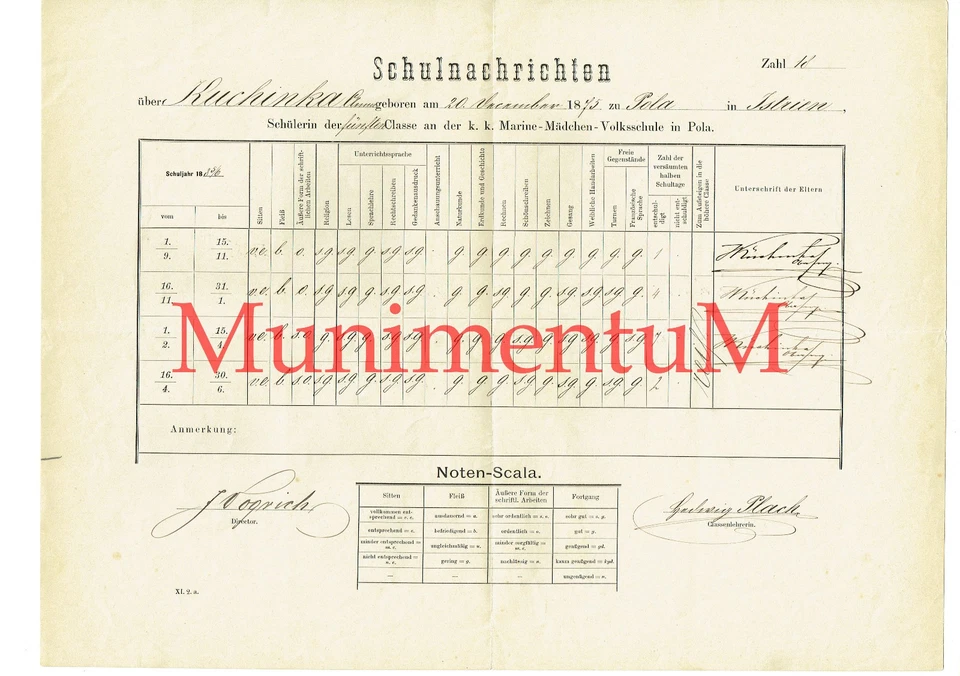 Schulnachrichten
Zahl 18
über Kuchinka Anna geboren am 20. December 1875 zu Pola in Istrien,
Schülerin der fünften Classe an der k. k. Marine-Mädchen-Volksschule in Pola.
Schuljahr 1886
vom bis
Sitten
Fleiß
Äußere Form der schriftlichen Arbeiten
Religion
Unterrichtssprache
Lesen
Sprachlehre
Rechtschreiben
Gedankenausdruck
Anschauungsunterricht
Naturkunde
Erdkunde und Geschichte
Rechnen
Schönschreiben
Zeichnen
Gesang
Weibliche Handarbeiten
Freie Gegenstände
Turnen
Französische Sprache
Zahl der versäumten halben Schultage
entschuldigt
nicht entschuldigt
Zum Aufsteigen in die höhere Classe
Unterschrift der Eltern
1. 9. 15. 11. v.e. b. o. sg sg g. sg sg . g. g. g. g. g. g. g. g. g. 1 .
16. 11. 31. 1. v.e. b. o. sg sg g. sg sg . g. g. sg g. g. sg. sg. sg. g. 4 .
1. 2. 15. 4. v.e. b. s.o. g. sg g. sg sg . g. g. g. s.g. g.
16. 4. 30. 6. v.e. b. s.o. sg sg g. sg sg . g. g. g. sg. g. sg. g. sg. g. 2 .
MunimentuM
Anmerkung:
Noten-Scala.
Sitten Fleiß Äußere Form der schriftl. Arbeiten Fortgang
vollkommen entsprechend = v. e. ausdauernd = a. sehr ordentlich = s. o. sehr gut = s. g.
entsprechend = e. befriedigend = b. ordentlich = o. gut = g.
minder entsprechend = m. e. ungleichmäßig = u. minder sorgfältig = m. s. genügend = gd.
nicht entsprechend = n. e. gering = g. nachlässig = n. kaum genügend = kgd.
— — — ungenügend = u.
J Vogrich
Director.
Hedwig Plach
Classenlehrerin.
XI. 2. a.